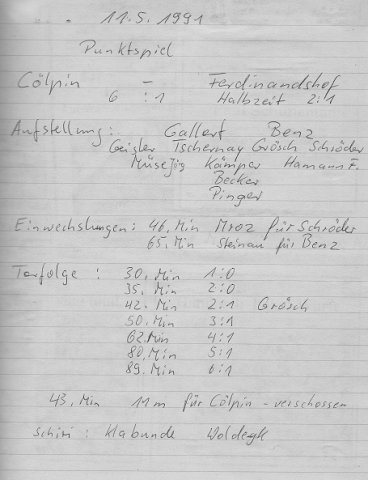 11.5. 1991
Punktspiel
Cölpin – Ferdinandshof
6 : 1 Halbzeit 2:1
Aufstellung: Gallert Benz
Geisler Tschernay Grösch Schröder
Kämper Hamann F.
Becker
Pinger
Einwechslungen: 46. Min Mroz für Schröder
65. Min Steinau für Benz
Torfolge : 30. Min 1:0
35. Min 2:0
42. Min 2:1 Grösch
50. Min 3:1
62. Min 4:1
80. Min 5:1
89. Min 6:1
43. Min 11m für Cölpin – verschossen
Schiri : Klabunde Woldegk